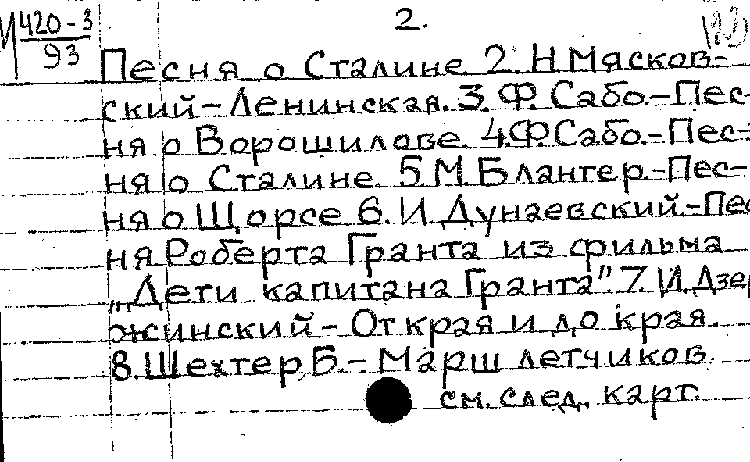 М 420-3 2.
93
Песня о Сталине 2. Н Мясков-
ский - Ленинская. 3. Ф. Сабо. - Пес-
ня о Ворошилове 4. Ф. Сабо. - Пес-
ня о Сталине 5 М. Блантер. - Пес-
ня о Щорсе 6. И. Дунаевский. - Пес
ня Роберта Гранта из фильма
„Дети капитана Гранта". 7 И. Дзер
жинский - От края и до края.
8. Шехтер Б. - Марш летчиков.
см. след. карт.